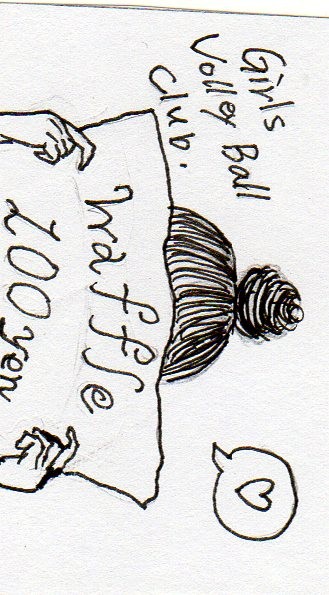 Girls
Volley Ball
Club.
Waffle
200 yen